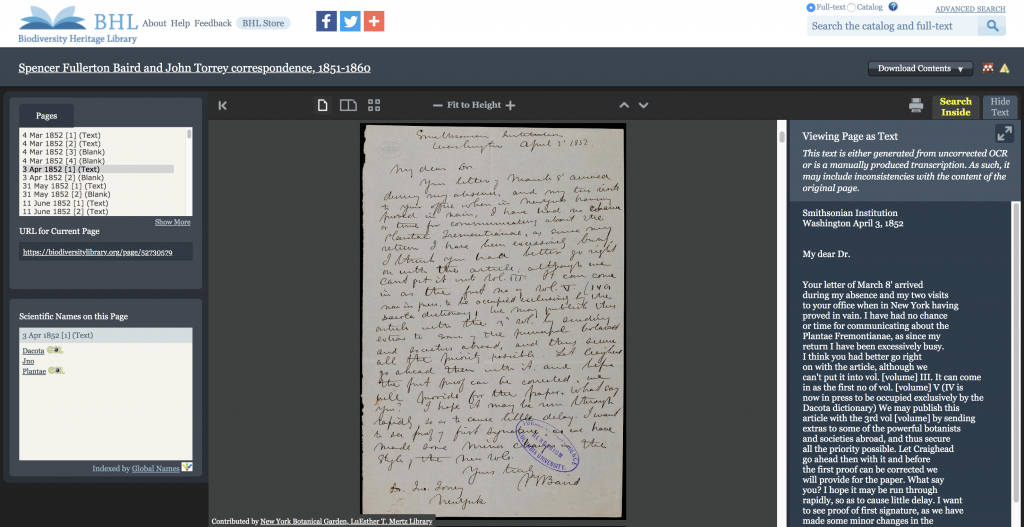 BHL
Biodiversity Heritage Library
About Help Feedback BHL Store
Full-text Catalog ?
ADVANCED SEARCH
Search the catalog and full-text
Spencer Fullerton Baird and John Torrey correspondence, 1851-1860
Download Contents
Pages
4 Mar 1852 [1] (Text)
4 Mar 1852 [2] (Text)
4 Mar 1852 [3] (Blank)
4 Mar 1852 [4] (Blank)
3 Apr 1852 [1] (Text)
3 Apr 1852 [2] (Blank)
31 May 1852 [1] (Text)
31 May 1852 [2] (Blank)
11 June 1852 [1] (Text)
11 June 1852 [2] (Text)
Show More
URL for Current Page
https://biodiversitylibrary.org/page/52730579
Scientific Names on this Page
3 Apr 1852 [1] (Text)
Dacota
Jno
Plantae
Indexed by Global Names
Fit to Height
Smithsonian Institution
Washington April 3' 1852
My dear Dr.
Your letter of March 8' arrived
during my absence, and my two visits
to your office when in New York having
proved in vain, I have had no chance
or time for communicating about the
Plantae Fremontianae, as since my
return I have been excessively busy.
I think you had better go right
on with the article, although we
cant put it into vol. III. It can come
in as the first no of vol. V (IV is
now in press, to be occupied exclusively by the
Dacota dictionary) We may publish this
article with the 3d vol. by sending
extras to some of the powerful botanists
and societies abroad, and thus secure
all the priority possible. Let Craighead
go ahead then with it, and before
the first proof can be corrected, we
will provide for the paper. What say
you? I hope it may be run through
rapidly, so as to cause little delay. I want
to see proof of first signature, as we have
made some minor changes in the
style of the new vols.
Yours truly
Dr. Jno. Torrey
New York
Contributed by New York Botanical Garden, LuEsther T. Mertz Library
Search Inside
Hide Text
Viewing Page as Text
This text is either generated from uncorrected OCR
or is a manually produced transcription. As such, it
may include inconsistencies with the content of the
original page.
Smithsonian Institution
Washington April 3, 1852
My dear Dr.
Your letter of March 8' arrived
during my absence and my two visits
to your office when in New York having
proved in vain. I have had no chance
or time for communicating about the
Plantae Fremontianae, as since my
return I have been excessively busy.
I think you had better go right
on with the article, although we
can't put it into vol. [volume] III. It can come
in as the first no of vol. [volume] V (IV is
now in press to be occupied exclusively by the
Dacota dictionary) We may publish this
article with the 3rd vol [volume] by sending
extras to some of the powerful botanists
and societies abroad, and thus secure
all the priority possible. Let Craighead
go ahead then with it and before
the first proof can be corrected we
will provide for the paper. What say
you? I hope it may be run through
rapidly, so as to cause little delay. I want
to see proof of first signature, as we have
made some minor changes in the